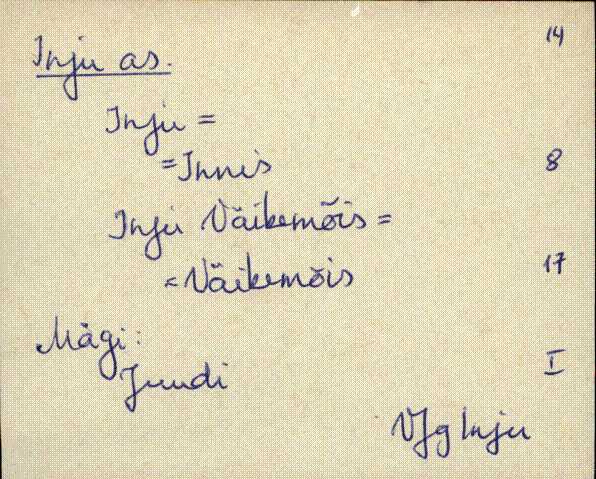 14
Inju as.
Inju =
= Innis 8
Inju Väikemõis =
= Väikemõis 17
Mägi:
Juudi I
VJg Inju